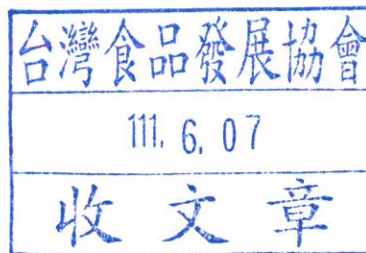 台灣食品發展協會
111. 6. 07
收文章